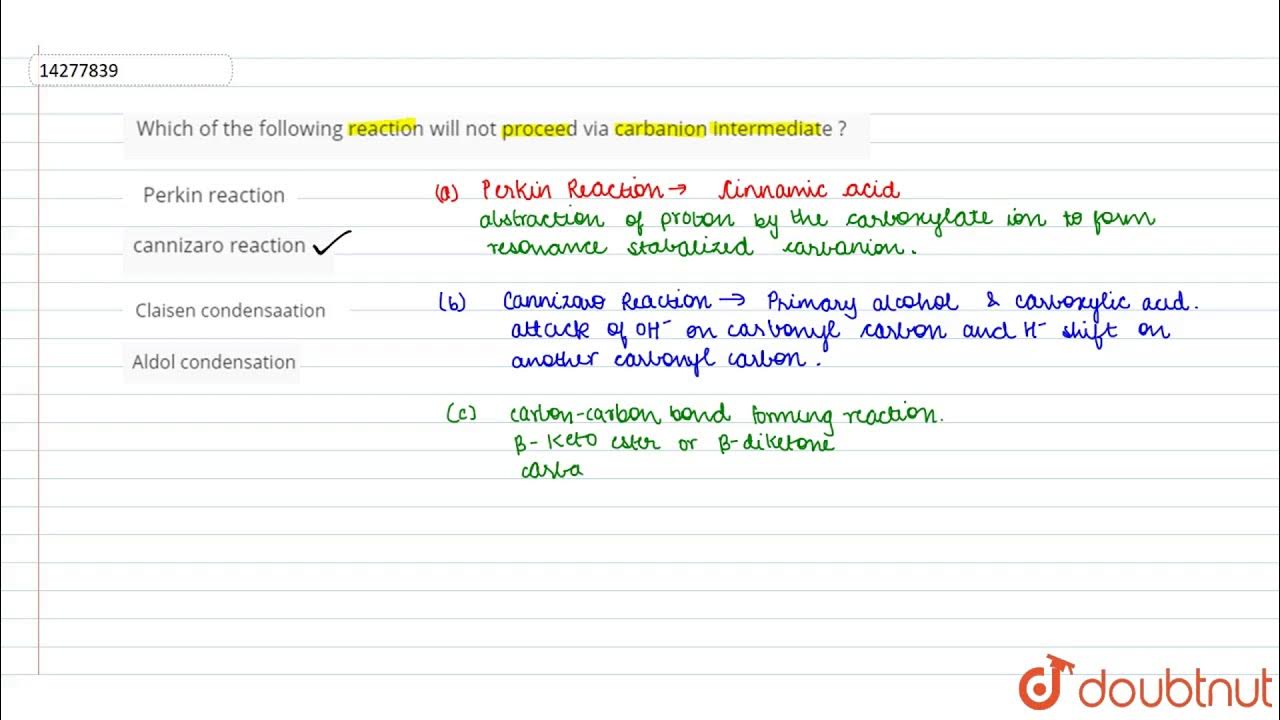 14277839
Which of the following reaction will not proceed via carbanion intermediate ?
Perkin reaction
cannizaro reaction
Claisen condensaation
Aldol condensation
(a) Perkin Reaction → Cinnamic acid
abstraction of proton by the carboxylate ion to form
resonance stabalized carbanion.
(b) Cannizaro Reaction → Primary alcohol & carboxylic acid.
attack of OH⁻ on carbonyl carbon and H⁻ shift on
another carbonyl carbon.
(c) carbon-carbon bond forming reaction.
β-keto ester or β-diketone
carba
doubtnut